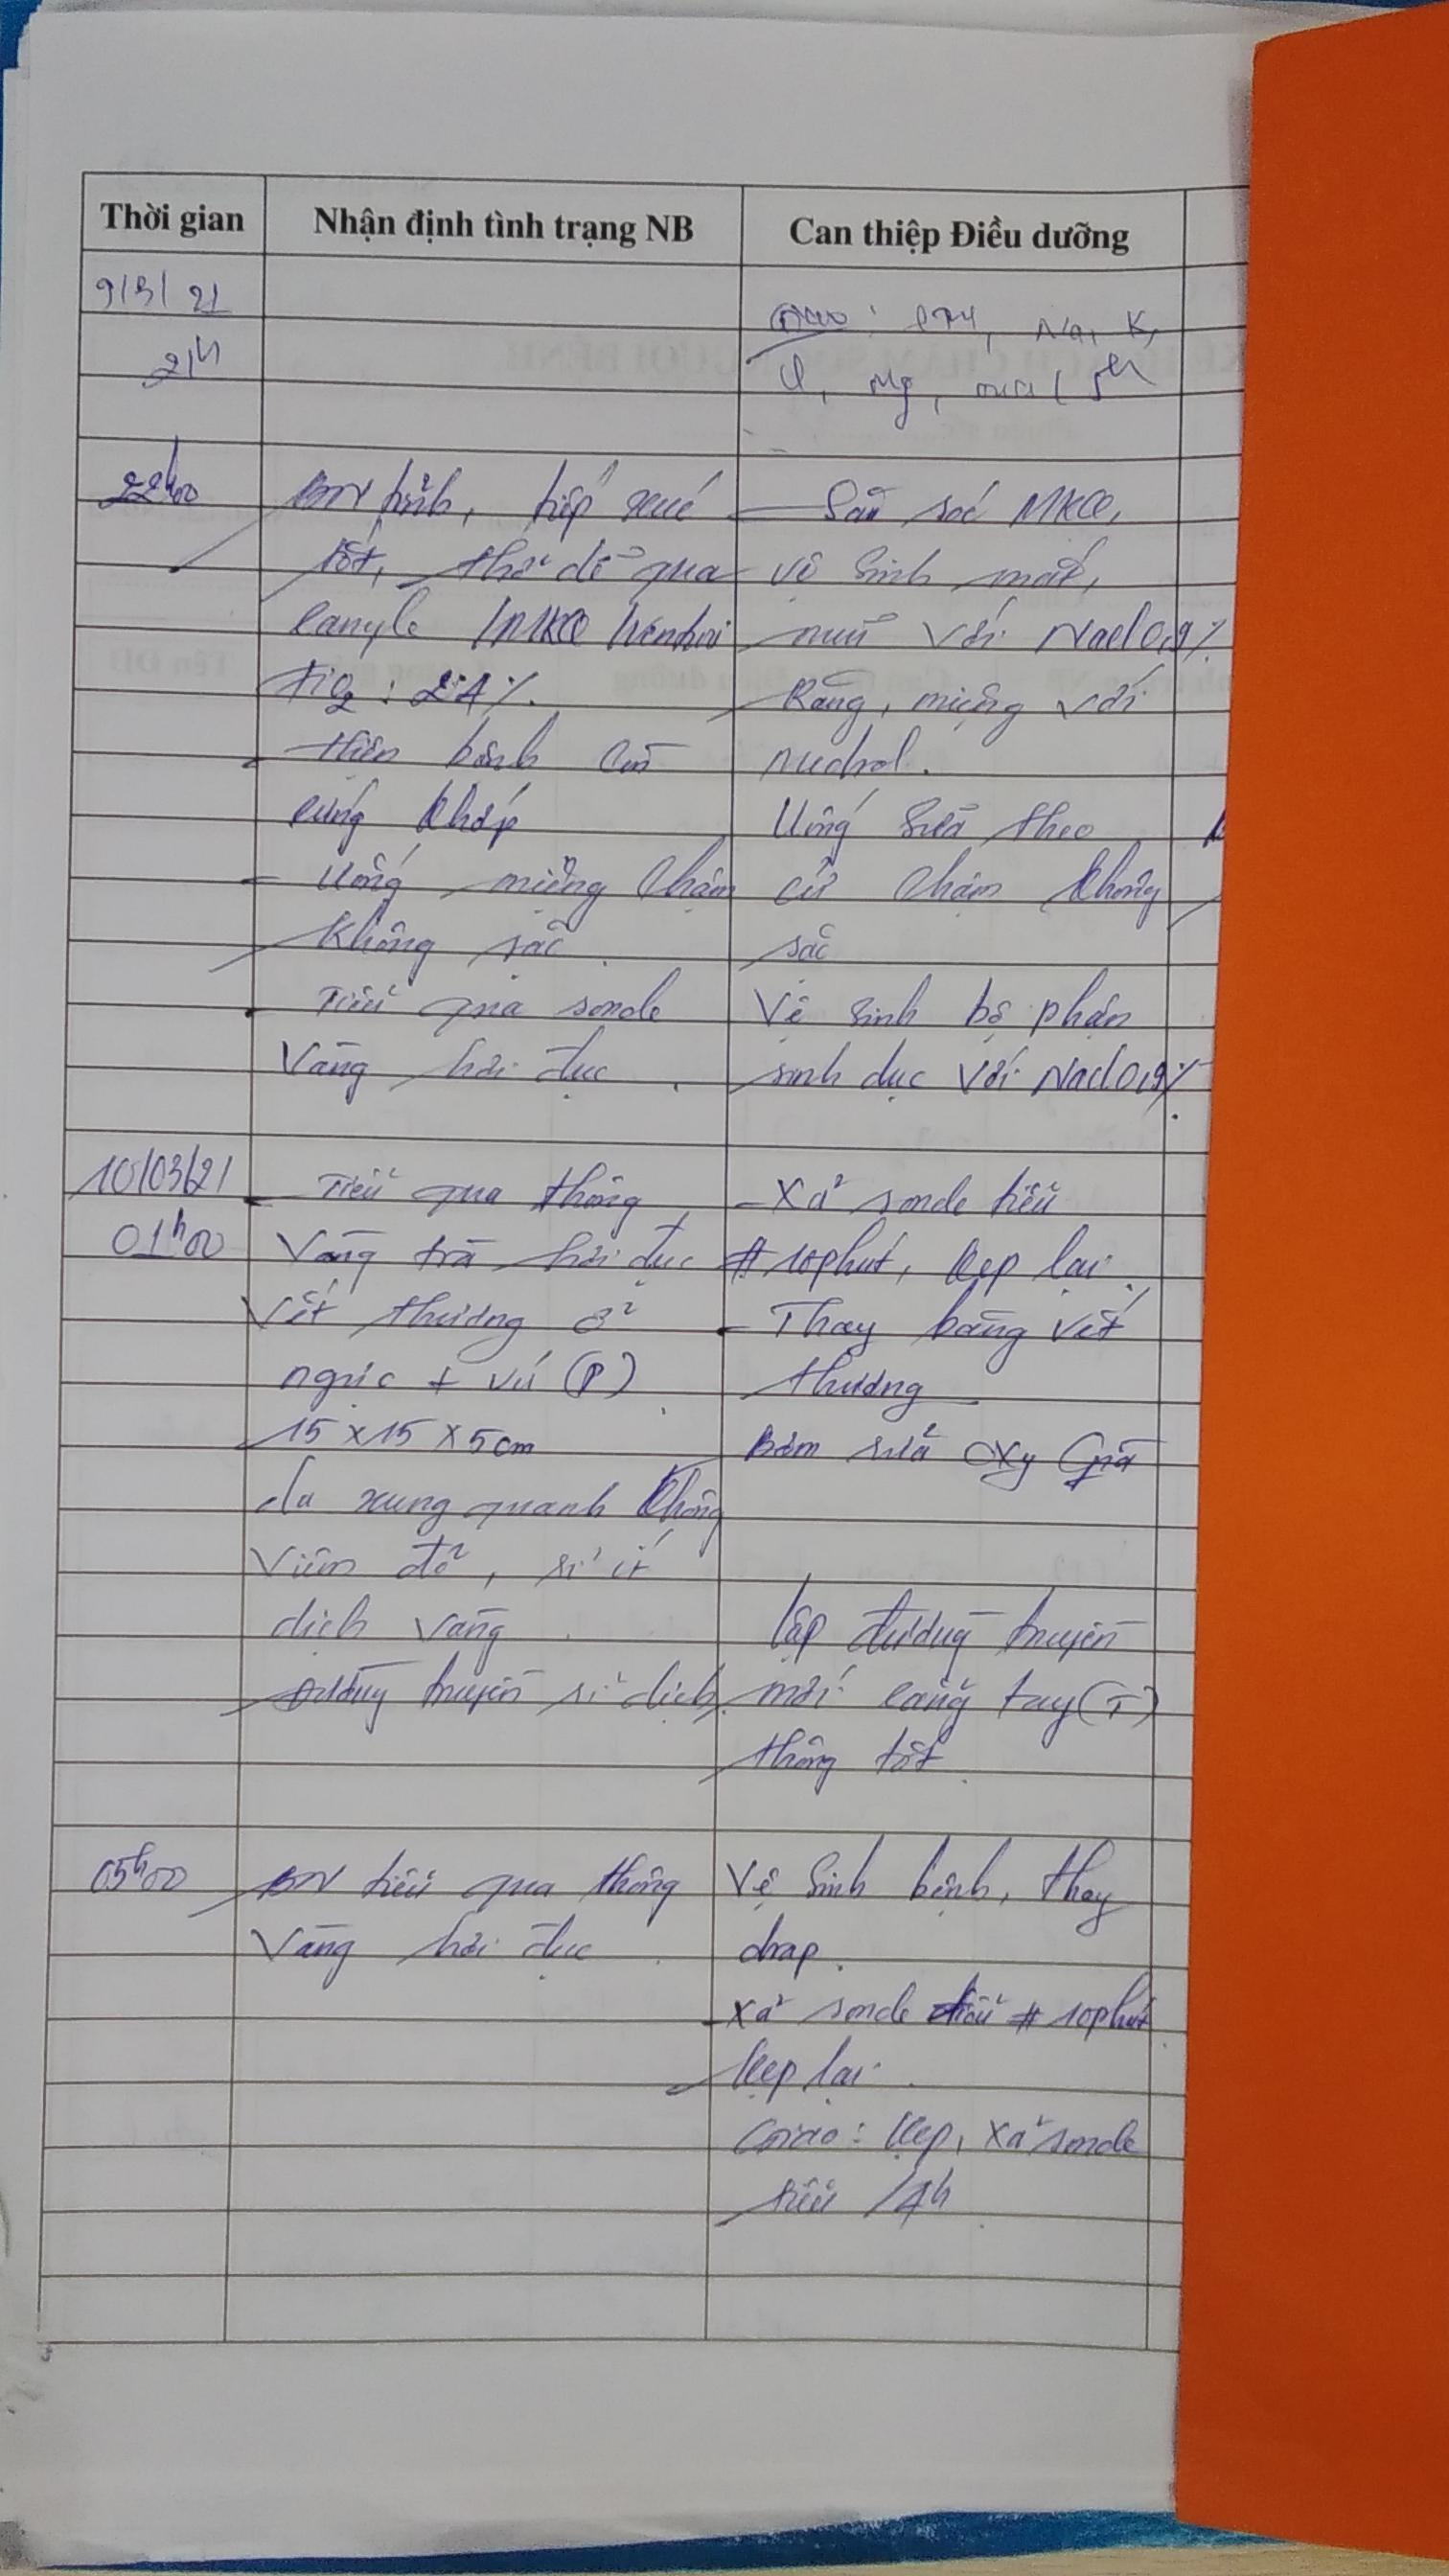 Thời gian
Nhận định tình trạng NB
Can thiệp Điều dưỡng
9/3/21
21h
Na, K,
Cl, Mg,
22h00
BN tỉnh, tiếp xúc
tốt, thở dễ qua
canyle /MKQ
FiO2: 24%.
- Hiện bệnh còn
cứng khớp
- Uống miệng chậm
không sặc.
- Tiểu qua sonde
Vàng hơi đục.
- Săn sóc MKQ,
vệ sinh mắt,
mũi với NaCl 0,9%
Răng, miệng với
Uống sữa theo
cữ chậm không
sặc
Vệ sinh bộ phận
sinh dục với NaCl 0,9%.
10/03/21
01h00
- Tiểu qua thông
Vàng trà hơi đục
Vết thương ở
ngực + vú (P)
15 x 15 x 5cm
da xung quanh không
viêm đỏ, rỉ ít
dịch vàng.
Đường truyền rỉ dịch.
- Xả sonde tiểu
# 10phút, kẹp lại.
- Thay băng vết
thương
Bơm rửa oxy Già
Lập đường truyền
mới cẳng tay (T)
thông tốt.
05h00
BN tiểu qua thông
Vàng hơi đục.
Vệ sinh bệnh, thay
drap.
- Xả sonde tiểu # 10phút
kẹp lại.
Giao: kẹp, xả sonde
tiểu /4h.